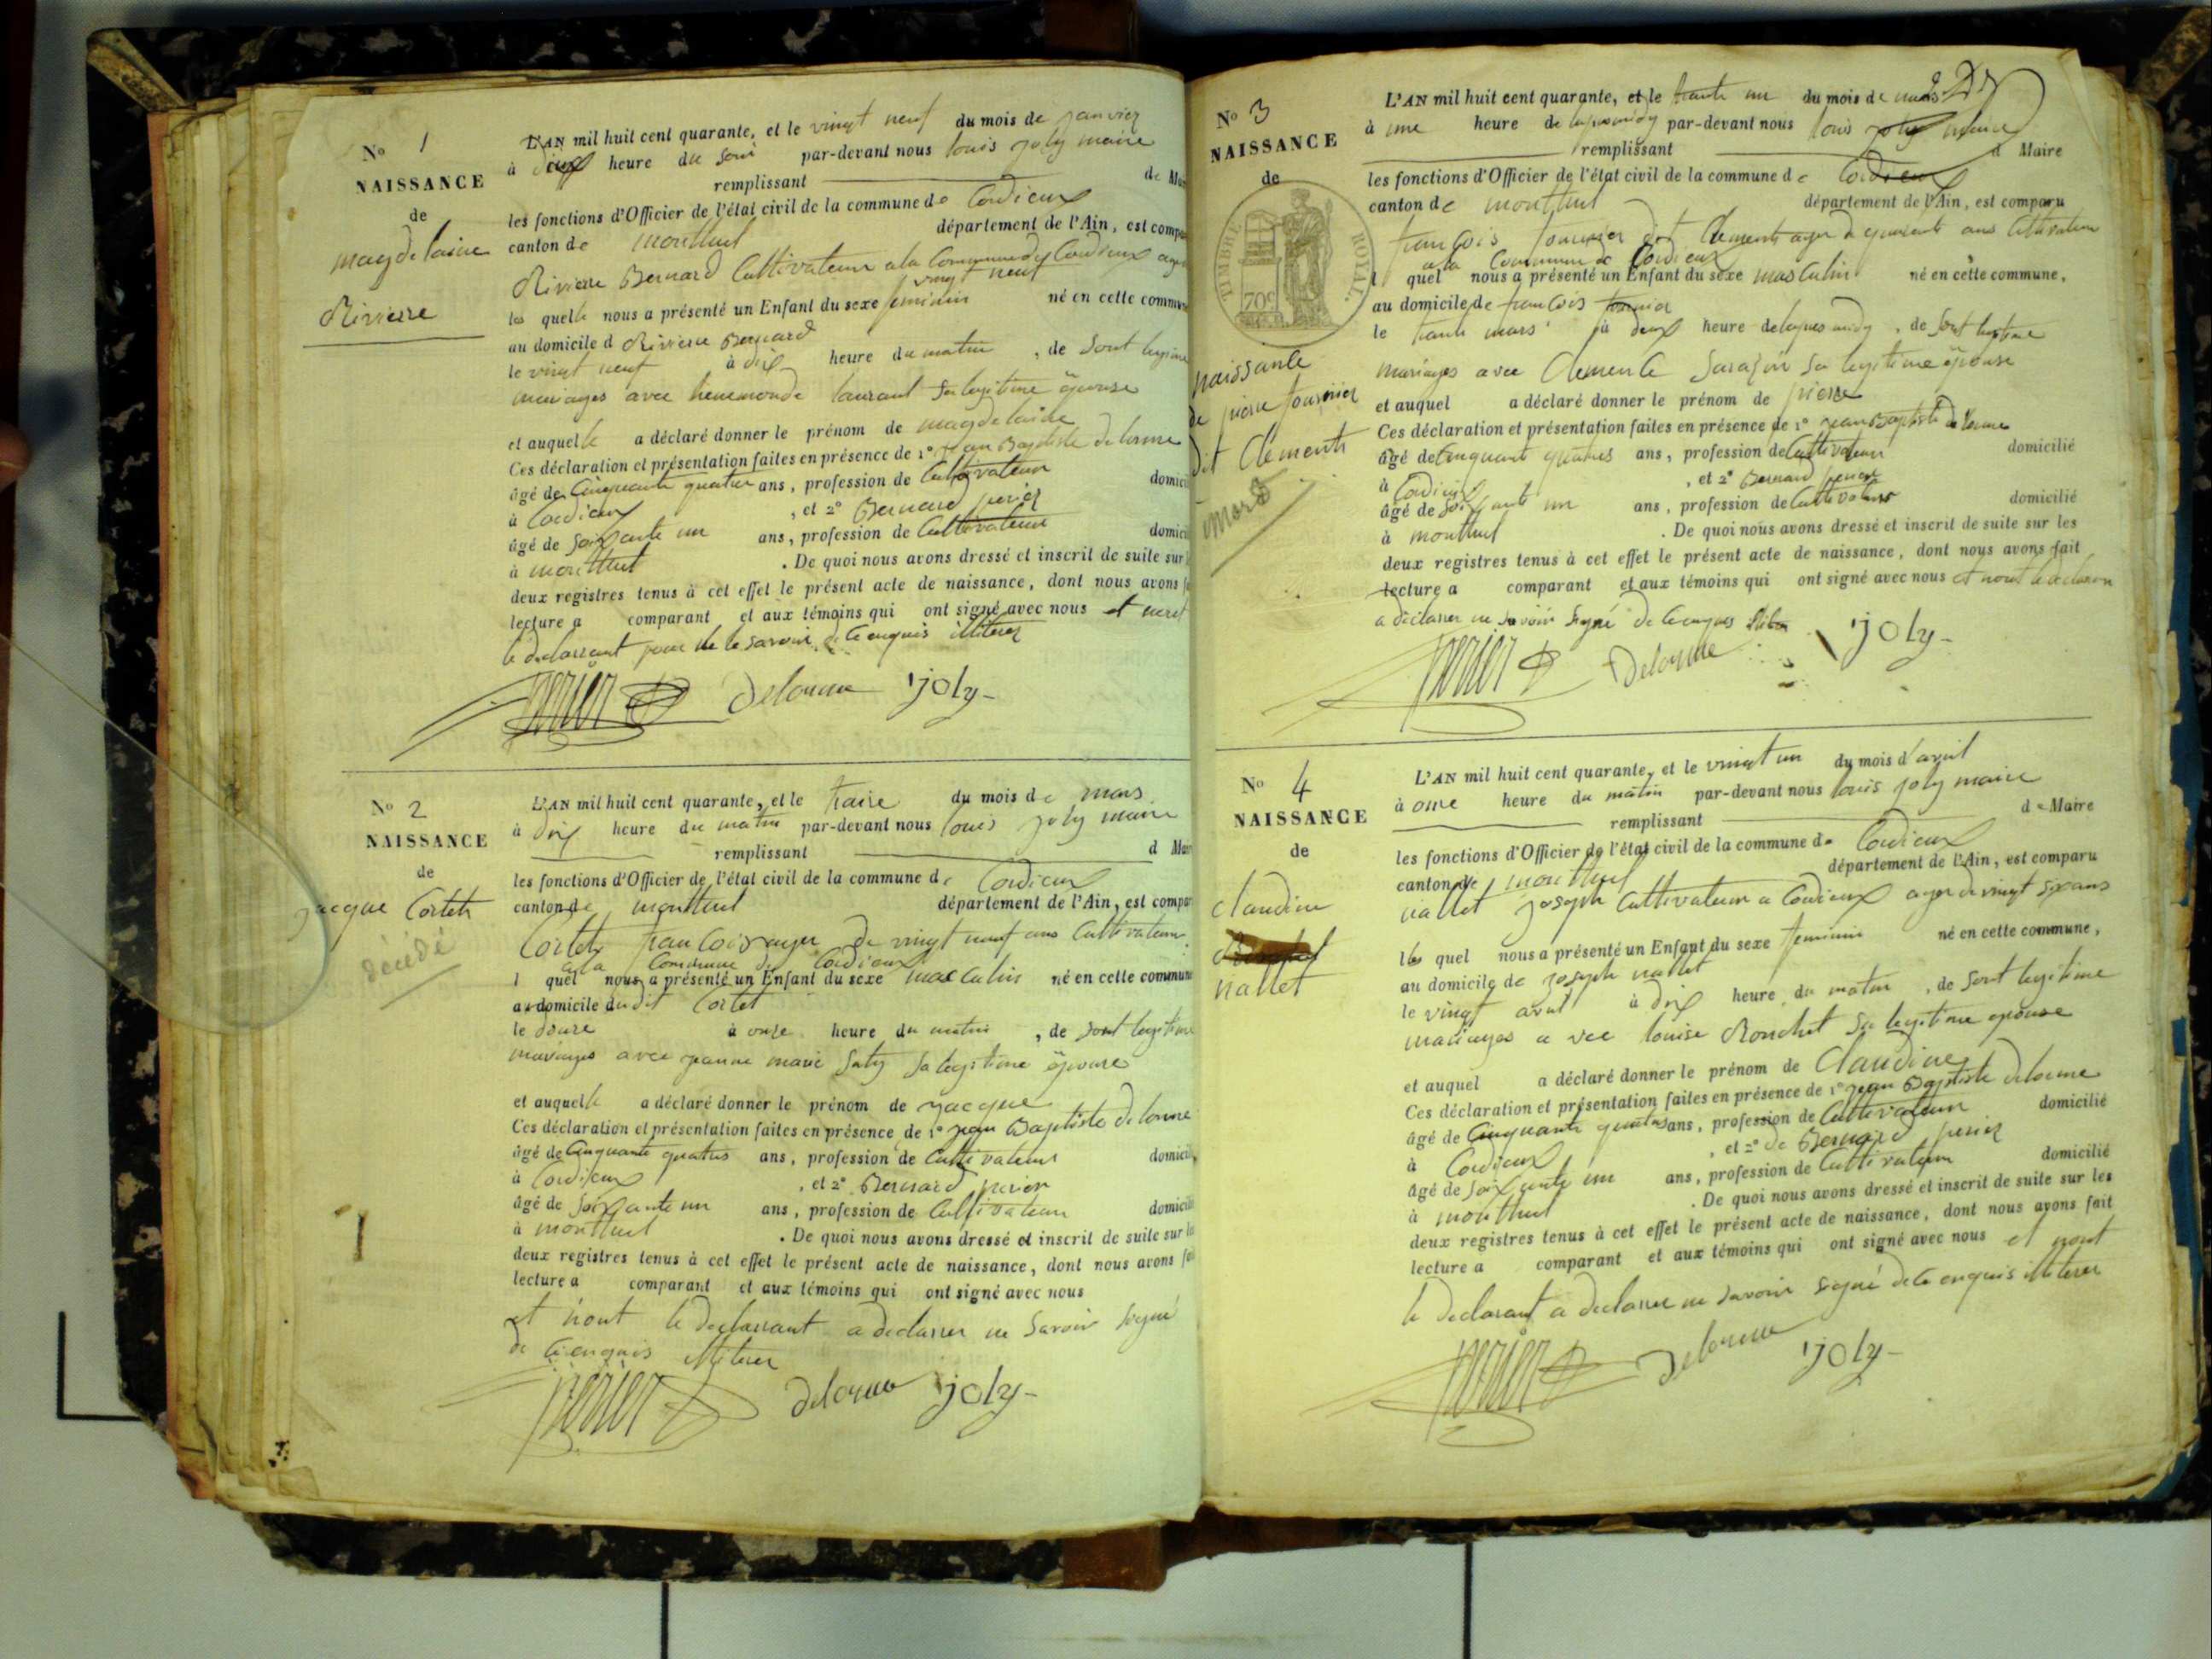 No 1
NAISSANCE
de
magdelaine
Rivierre
L'AN mil huit cent quarante, et le vingt neuf du mois de janvier
à deux heure du soir par-devant nous louis joly maire
remplissant de Mai
les fonctions d'Officier de l'état civil de la commune de Cordieux
canton de montluel département de l'Ain, est compa
Rivierre Bernard Cultivateur a la Commune de Cordieux
vingt neuf
les quelle nous a présenté un Enfant du sexe feminin né en cette commune
au domicile d Rivierre Bernard
le vingt neuf à dix heure du matin, de sont legitime
mariages avec laurant sa legitime épouse
et auquelle a déclaré donner le prénom de magdelaine
Ces déclaration et présentation faites en présence de 1° jean Baptiste delorme
âgé de Cinquante quatre ans, profession de Cultivateur domicili
à Cordieux, et 2° Bernard perier
âgé de Soixante un ans, profession de Cultivateur domicili
à montluel. De quoi nous avons dressé et inscrit de suite sur
deux registres tenus à cet effet le présent acte de naissance, dont nous avons
lecture a comparant et aux témoins qui ont signé avec nous et
le declarrant pour ne le savoir de ce enquis
perier delorme joly
No 2
NAISSANCE
de
jacque Cortet
décédé
L'AN mil huit cent quarante, et le traise du mois de mars
à dix heure du matin par-devant nous louis joly maire
remplissant d Mair
les fonctions d'Officier de l'état civil de la commune de Cordieux
canton de montluel département de l'Ain, est compar
Cortet francois ager de vingt neuf ans Cultivateur
a la Commune de Cordieux
l quel nous a présenté un Enfant du sexe masculin né en cette commune
au domicile du dit Cortet
le douze à onze heure du matin, de sont legitime
mariages avec jeanne marie Saty sa legitime épouse
et auquelle a déclaré donner le prénom de jacque
Ces déclaration et présentation faites en présence de 1° jean Baptiste delorme
âgé de Cinquante quatre ans, profession de Cultivateur domicili
à Cordieux, et 2° Bernard perier
âgé de Soixante un ans, profession de Cultivateur domicili
à montluel. De quoi nous avons dressé et inscrit de suite sur les
deux registres tenus à cet effet le présent acte de naissance, dont nous avons fai
lecture a comparant et aux témoins qui ont signé avec nous
et nont le declarrant a declarrer ne savoir signé
de ce enquis
perier delorme joly
No 3
NAISSANCE
de
TIMBRE ROYAL
70c
naissance
de pierre fournier
dit Clement
mort
L'AN mil huit cent quarante, et le trante un du mois de mars
à une heure de lapresmidy par-devant nous louis joly maire
remplissant d Maire
les fonctions d'Officier de l'état civil de la commune de Cordieux
canton de montluel département de l'Ain, est comparu
francois fournier dit Clement ager de ans Cultivateur
a la Commune de Cordieux
l quel nous a présenté un Enfant du sexe masculin né en cette commune,
au domicile de francois fournier
le trante mars à deux heure delapres midy, de sont legitime
mariages avec Clemence Sarazin sa legitime épouse
et auquel a déclaré donner le prénom de pierre
Ces déclaration et présentation faites en présence de 1° jean Baptiste delorme
âgé de Cinquante quatres ans, profession de Cultivateur domicilié
à Cordieux, et 2° Bernard perier
âgé de Soixante un ans, profession de Cultivateur domicilié
à montluel. De quoi nous avons dressé et inscrit de suite sur les
deux registres tenus à cet effet le présent acte de naissance, dont nous avons fait
lecture a comparant et aux témoins qui ont signé avec nous et nont le
a declarrer ne savoir signé de ce enquis
perier Delorme joly
No 4
NAISSANCE
de
claudine
nallet
L'AN mil huit cent quarante, et le vingt un du mois d'avril
à onze heure du matin par-devant nous louis joly maire
remplissant de Maire
les fonctions d'Officier de l'état civil de la commune de Cordieux
canton de montluel département de l'Ain, est comparu
nallet joseph Cultivateur a Cordieux ager de vingt six ans
les quel nous a présenté un Enfant du sexe feminin né en cette commune,
au domicile de joseph nallet
le vingt avril à dix heure du matin, de sont legitime
mariages a vec louise Ronchet sa legitime epouse
et auquel a déclaré donner le prénom de Claudine
Ces déclaration et présentation faites en présence de 1° jean Baptiste delorme
âgé de Cinquante quatres ans, profession de Cultivateur domicilié
à Cordieux, et 2° de Bernard perier
âgé de Soixante un ans, profession de Cultivateur domicilié
à montluel. De quoi nous avons dressé et inscrit de suite sur les
deux registres tenus à cet effet le présent acte de naissance, dont nous avons fait
lecture a comparant et aux témoins qui ont signé avec nous et nont
le declarant a declarrer ne savoir signé de ce enquis
perier delorme joly